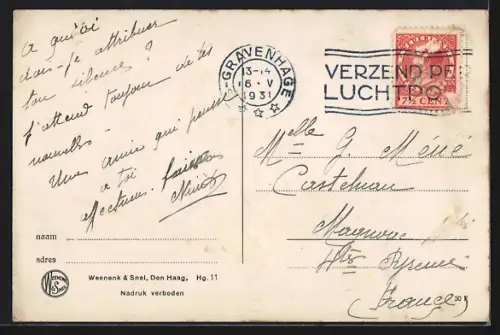 A quoi
dois-je attribuer
ton silence ?
J'attend toujours de tes
nouvelles -
Une amie qui pense
à toi
Affectueux
naam
adres
Weenenk & Snel, Den Haag, Hg. 11
Nadruk verboden
'S-GRAVENHAGE
13-14
6 - V
1931
VERZEND PER
LUCHTPO
7½ CENT
Melle G. Méné
Castelnau
Magnoac
Htes Pyrénées
(France)